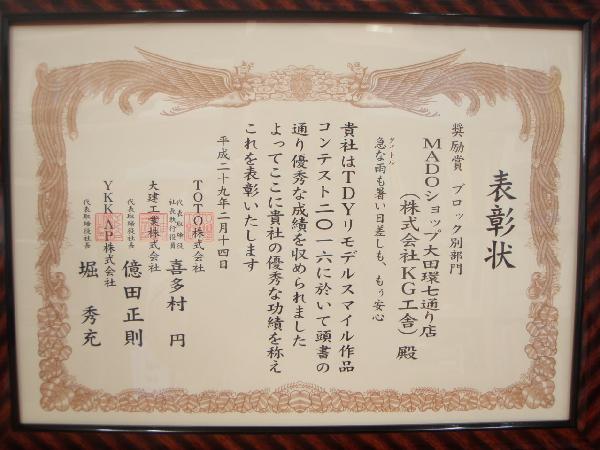 表彰状
奨励賞 ブロック別部門
MADOショップ大田環七通り店
（株式会社KG工舎）殿
タイトル
急な雨も暑い日差しも、もう安心
貴社はTDYリモデルスマイル作品
コンテスト二〇一六に於いて頭書の
通り優秀な成績を収められました
よってここに貴社の優秀な功績を称え
これを表彰いたします
平成二十九年二月十四日
TOTO株式会社
代表取締役
社長執行役員
喜多村 円
大建工業株式会社
代表取締役社長
億田正則
YKKAP株式会社
代表取締役社長
堀 秀充